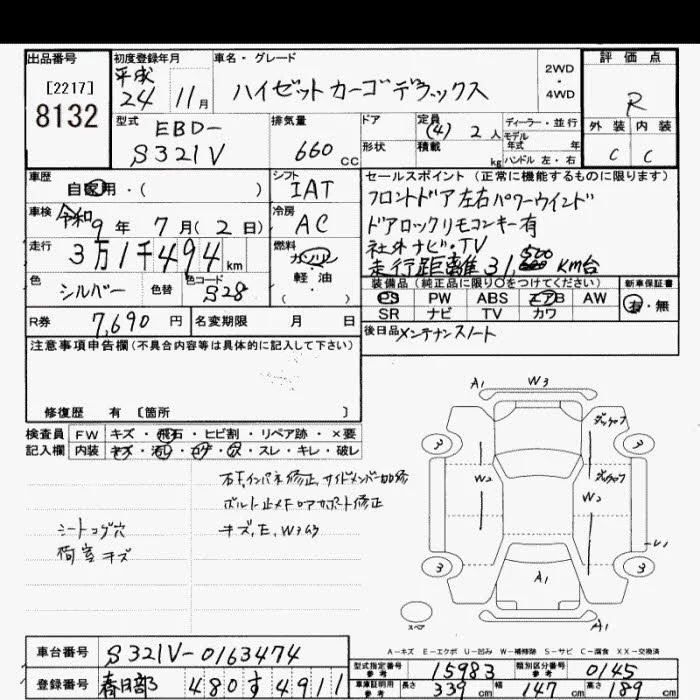 出品番号
[2217]
8132
初度登録年月
平成
24 11月
車名・グレード
ハイゼットカーゴデラックス
2WD
・
4WD
評価点
R
外装 内装
C C
型式
EBD-
S321V
排気量
660 CC
ドア
形状
定員
(4) 2人
積載 kg
ディーラー・並行
モデル
年式 年
ハンドル 左・右
車歴
自家用・( )
シフト
IAT
セールスポイント (正常に機能するものに限ります)
フロントドア左右パワーウインド
ドアロックリモコンキー有
社外ナビ・TV
走行距離 31,500 KM台
車検
令和9年 7月(2日)
冷房
AC
走行
3万1千494 km
燃料
ガソリン
・
軽油
( )
色
シルバー
色替
色コード
S28
装備品 (純正品に限り○をつけてください)
PS PW ABS エアB AW
SR ナビ TV カワ
新車保証書
有・無
R券 7,690円
名変期限 月 日
後日品 メンテナンスノート
注意事項申告欄 (不具合内容等は具体的に記入して下さい)
修復歴 有 [箇所 ]
検査員
記入欄
FW キズ・飛石・ヒビ割・リペア跡・×要
内装 キズ・汚レ・コゲ・穴・スレ・キレ・破レ
シートコゲ穴
荷室キズ
ボルト止メFロアサポート修正
キズ,E,W
A1 W3
3 3
W2 W2
3 3
A1
A1
スペア
A-キズ E-エクボ U-凹み W-補修跡 S-サビ C-腐食 XX-交換済
車台番号 S321V-0163474
登録番号 春日部 480 す 4911
型式指定番号
参考
15983
類別区分番号
参考
0145
車庫証明用
参考
長さ 339 幅 147 高さ 189